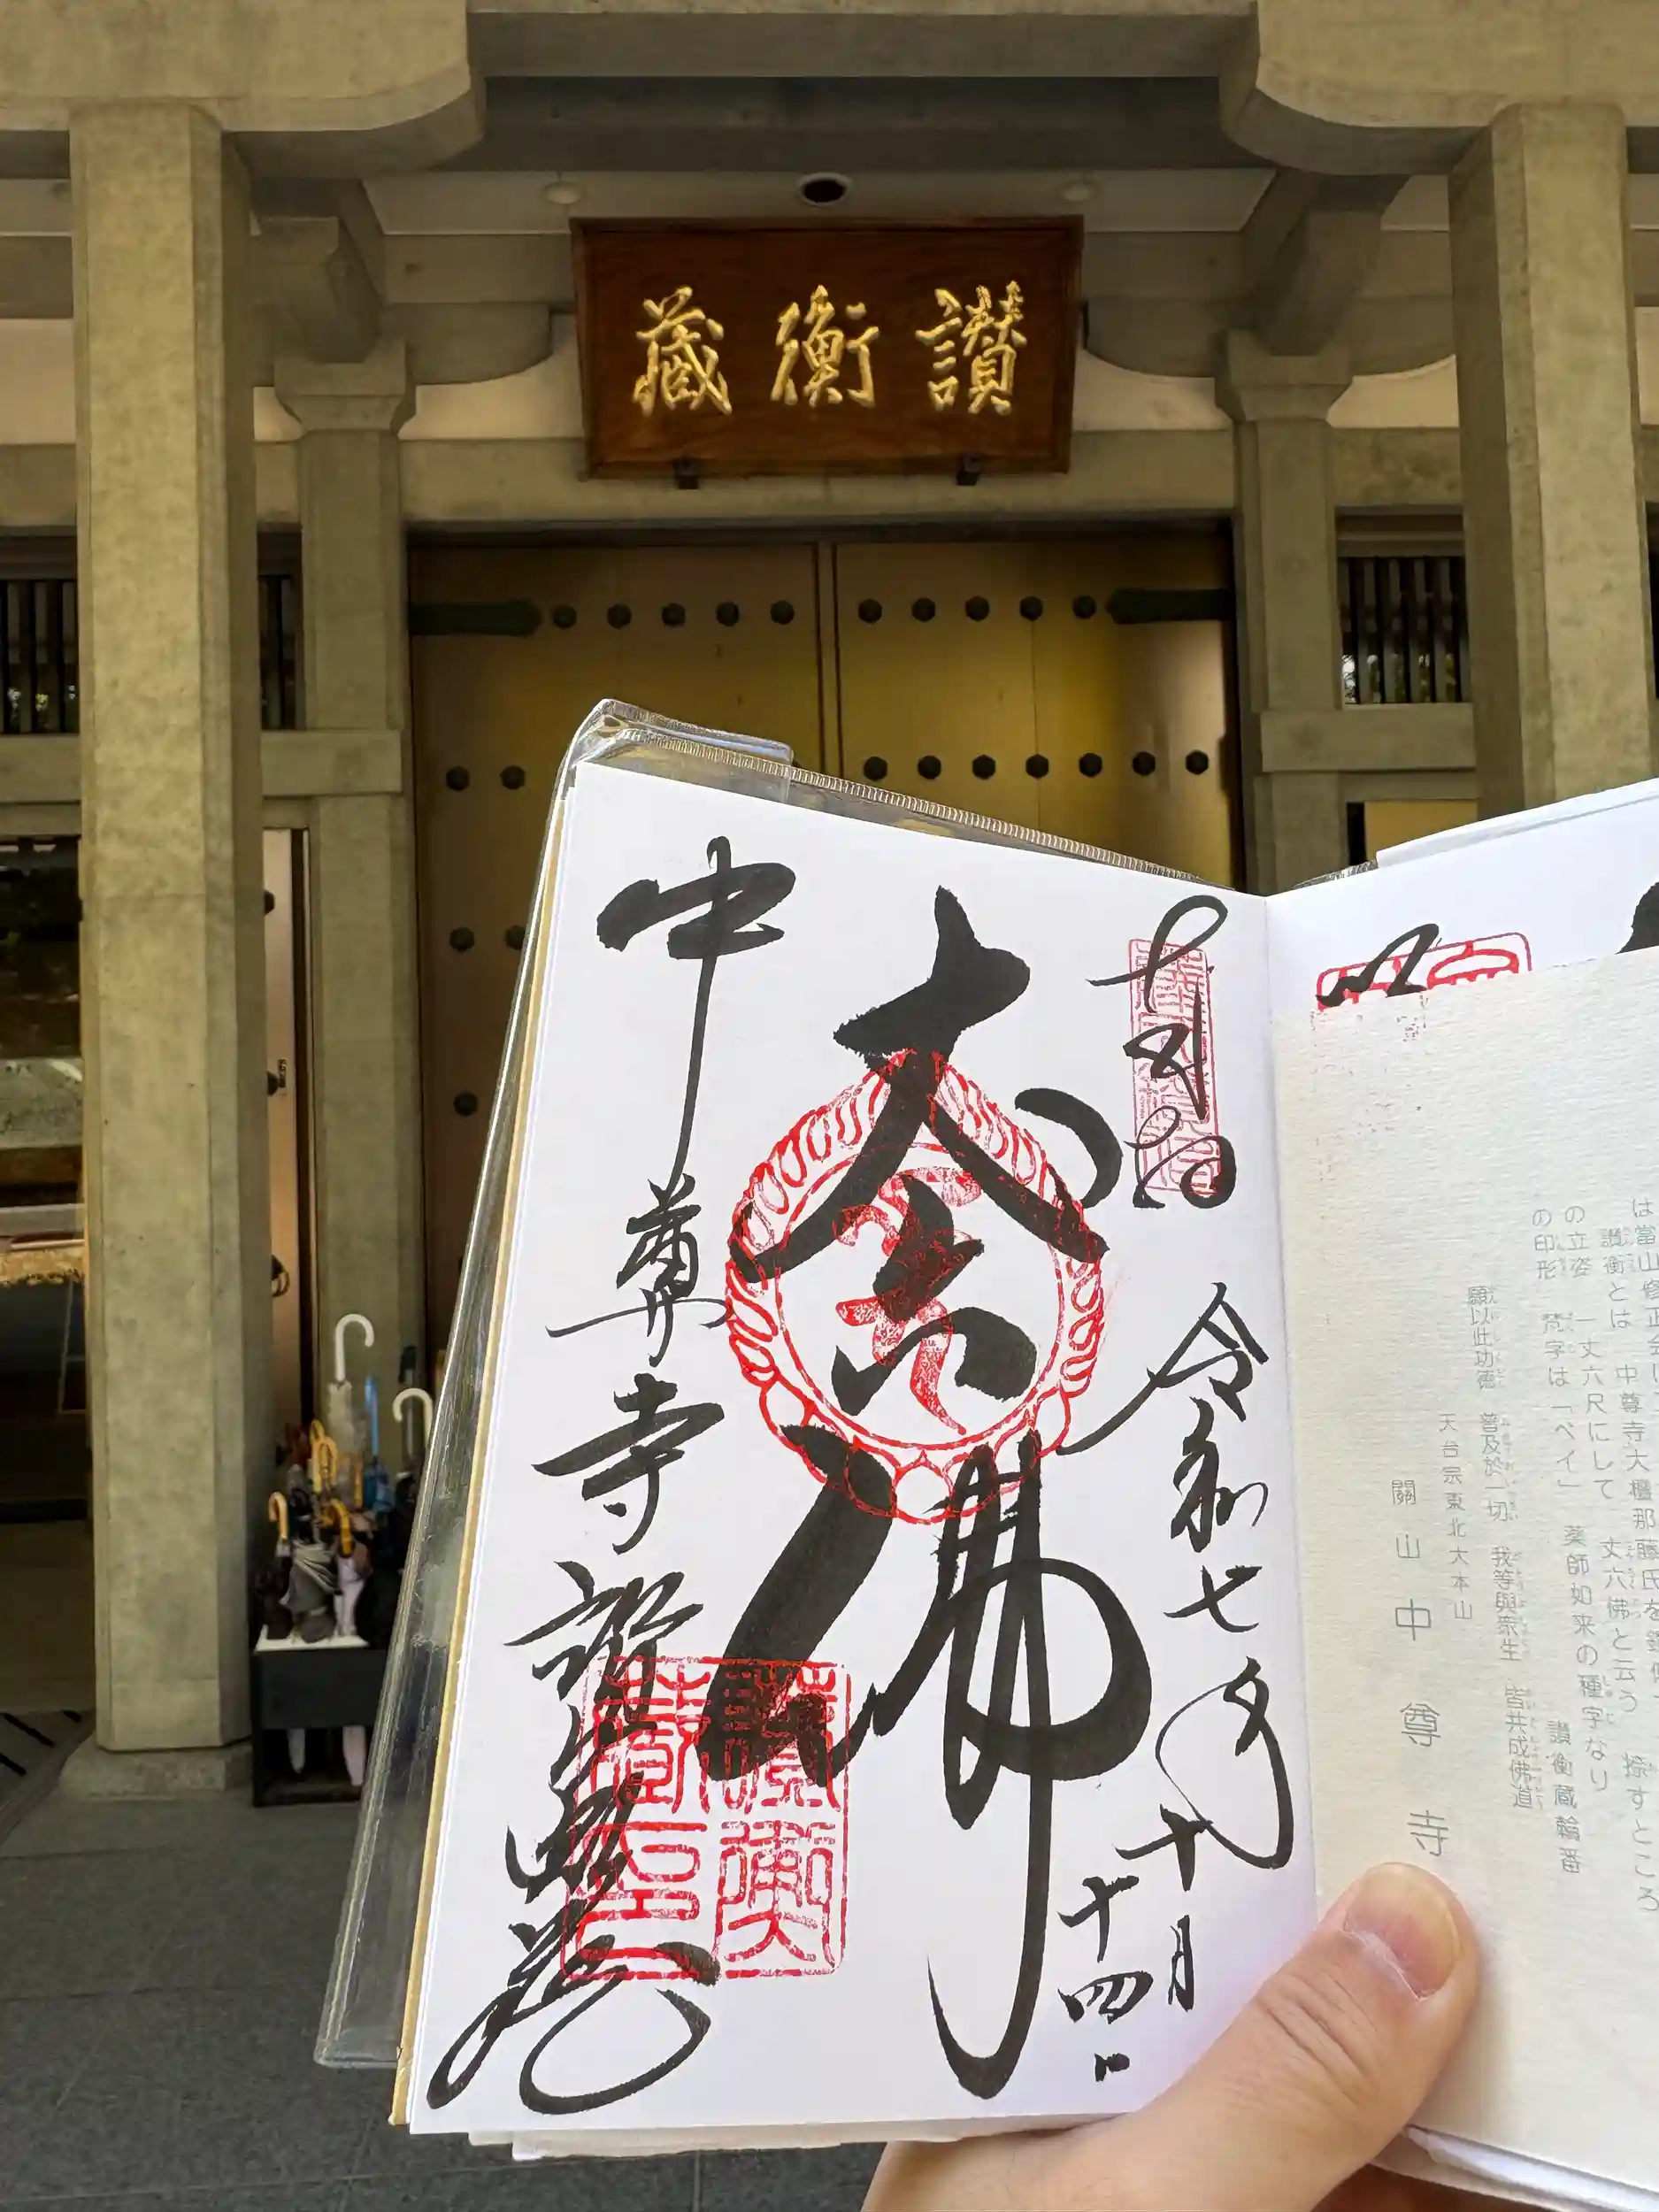 讃衡蔵
奉拝
令和七年十月
十四日
丈六佛
中尊寺讃衡蔵
讃衡蔵印
は當山修正会に
讃衡とは 中尊寺大檀那藤氏を
の立姿 一丈六尺にして 丈六佛と云う 捺すところ
の印形 梵字は「ベイ」 薬師如来の種字なり
讃衡蔵輪番
願以此功徳 普及於一切 我等與衆生 皆共成佛道
天台宗東北大本山
關山中尊寺